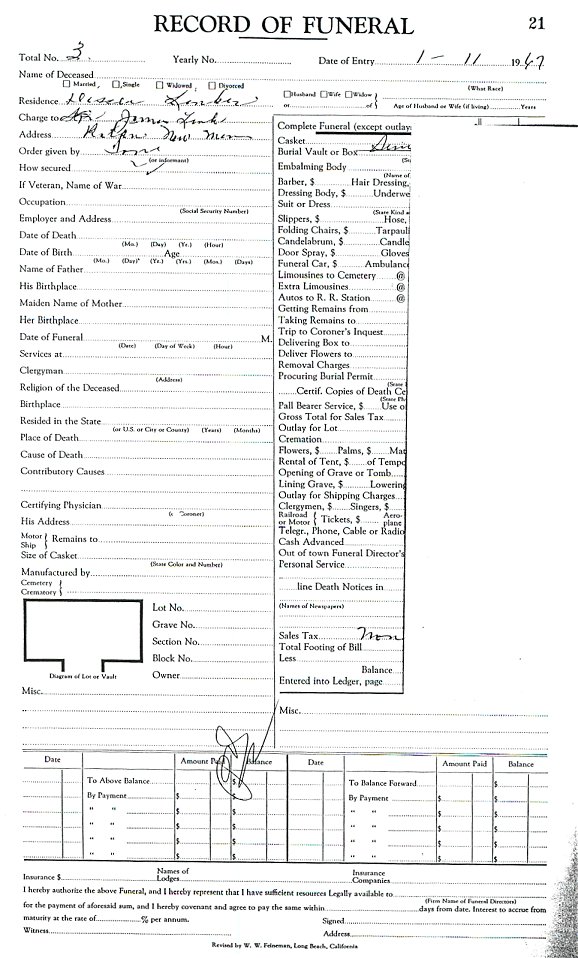 RECORD OF FUNERAL 21
Total No. 3 Yearly No. Date of Entry 1 - 11 1967
Name of Deceased
Married, Single Widowed, Divorced
Residence
Charge to James
Address New Mex
Order given by
(or informant)
How secured
If Veteran, Name of War
Occupation
(Social Security Number)
Employer and Address
Date of Death
(Mo.) (Day) (Yr.) (Hour)
Date of Birth Age
(Mo.) (Day) (Yr.) (Yrs.) (Mos.) (Days)
Name of Father
His Birthplace
Maiden Name of Mother
Her Birthplace
Date of Funeral M.
(Date) (Day of Week) (Hour)
Services at
Clergyman
(Address)
Religion of the Deceased
Birthplace
Resided in the State
(or U.S. or City or County) (Years) (Months)
Place of Death
Cause of Death
Contributory Causes
Certifying Physician
(or Coroner)
His Address
Motor Ship } Remains to
Size of Casket
(State Color and Number)
Manufactured by
Cemetery Crematory }
Lot No.
Grave No.
Section No.
Block No.
Owner
Diagram of Lot or Vault
Misc.
Husband Wife Widow
or of } Age of Husband or Wife (if living) Years
(What Race)
Complete Funeral (except outlay
Casket
Burial Vault or Box
Embalming Body
(Name of
Barber, $ Hair Dressing,
Dressing Body, $ Underwe
Suit or Dress
(State Kind a
Slippers, $ Hose,
Folding Chairs, $ Tarpauli
Candelabrum, $ Candle
Door Spray, $ Gloves
Funeral Car, $ Ambulanc
Limousines to Cemetery @
Extra Limousines @
Autos to R. R. Station @
Getting Remains from
Taking Remains to
Trip to Coroner's Inquest
Delivering Box to
Deliver Flowers to
Removal Charges
Procuring Burial Permit
(State
Certif. Copies of Death Ce
Pall Bearer Service, $ Use o
Gross Total for Sales Tax
Outlay for Lot
Cremation
Flowers, $ Palms, $ Mat
Rental of Tent, $ of Tempo
Opening of Grave or Tomb
Lining Grave, $ Lowering
Outlay for Shipping Charges
Clergymen, $ Singers, $
Railroad or Motor { Tickets, $ Aero-plane
Telegr., Phone, Cable or Radio
Cash Advanced
Out of town Funeral Director's
Personal Service
line Death Notices in
(Names of Newspapers)
Sales Tax
Total Footing of Bill
Less
Balance
Entered into Ledger, page
Misc.
Date Amount Paid Balance Date Amount Paid Balance
To Above Balance $ To Balance Forward $
By Payment $ $ By Payment $ $
" " $ $ " " $ $
" " $ $ " " $ $
" " $ $ " " $ $
" " $ $ " " $ $
Insurance $ Names of Lodges Insurance Companies
I hereby authorize the above Funeral, and I hereby represent that I have sufficient resources Legally available to
(Firm Name of Funeral Directors)
for the payment of aforesaid sum, and I hereby covenant and agree to pay the same within days from date. Interest to accrue from
maturity at the rate of % per annum. Signed
Witness Address
Revised by W. W. Feineman, Long Beach, California